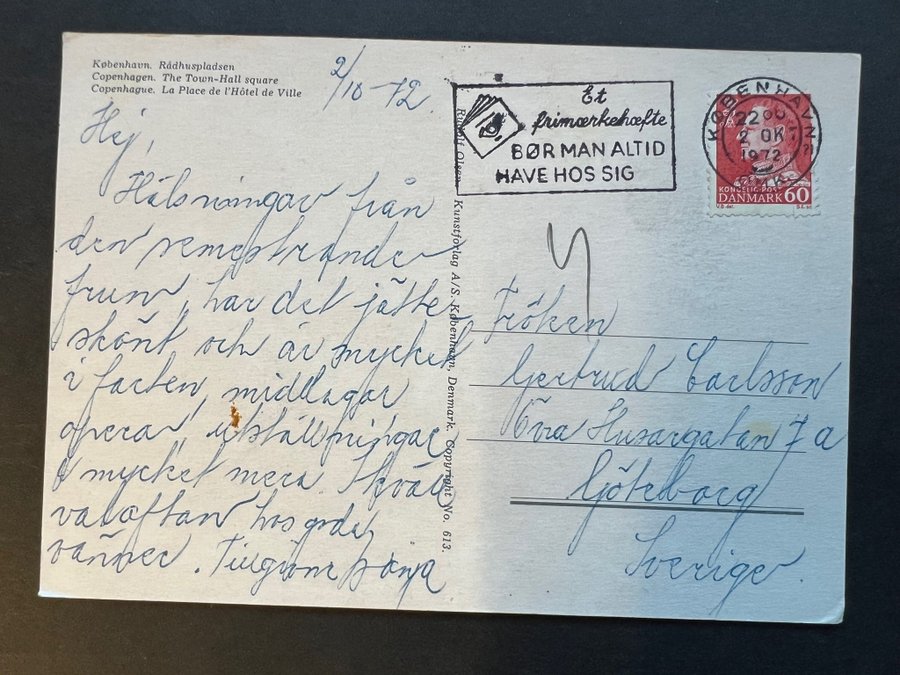 København. Rådhuspladsen
Copenhagen. The Town-Hall square
Copenhague. La Place de l'Hôtel de Ville
2/10-72
Hej,
Hälsningar från
den semestrande
frun, har det jätte
skönt och är mycket
i farten, middagar
operan, utställningar
mycket mera. Ikväll
hos goda
vänner.
Rudolf Olsen Kunstforlag A/S. København, Denmark. Copyright No. 613.
Et
frimærkehæfte
BØR MAN ALTID
HAVE HOS SIG
KØBENHAVN
22
2 OK
1972
KONGELIG POST
DANMARK 60
Fröken
Gertrud Carlsson
Övra Husargatan 7 a
Göteborg
Sverige